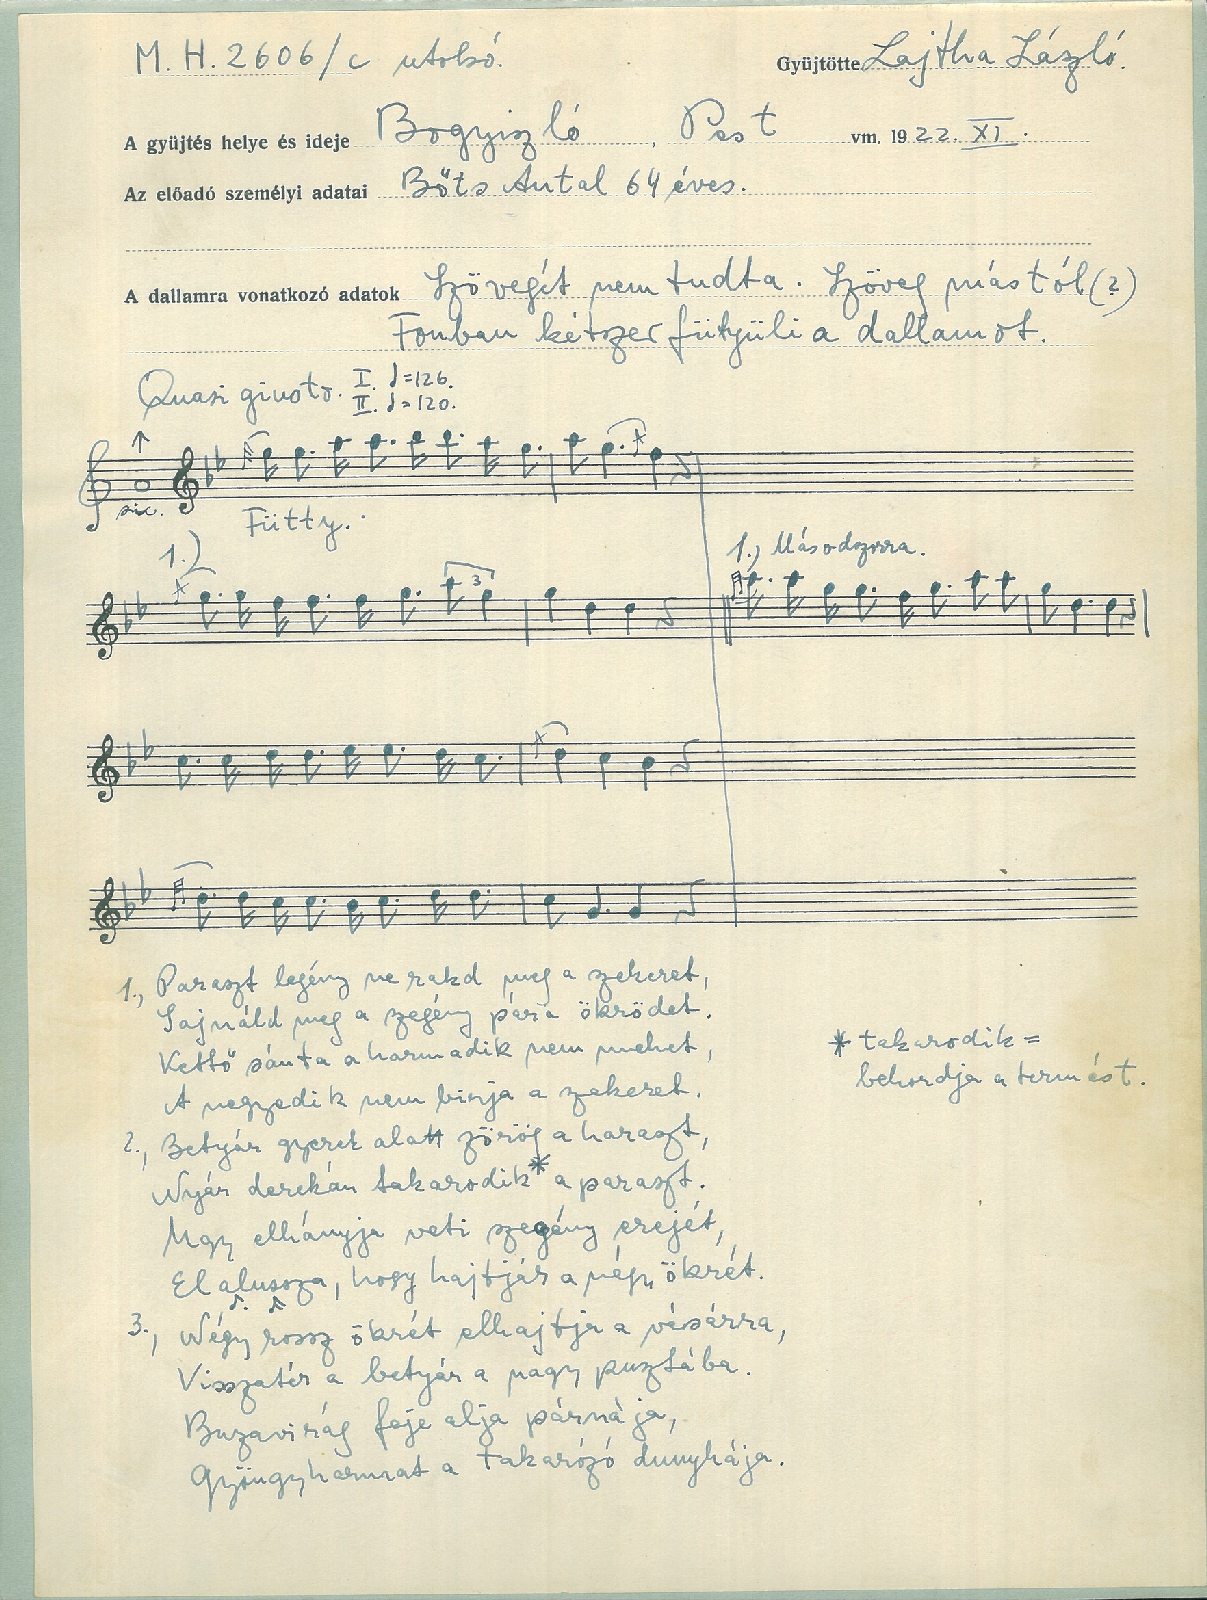 M. H. 2606/c utolsó.
Gyüjtötte Lajtha László.
A gyüjtés helye és ideje Bogyiszló, Pest vm. 1922. XI.
Az előadó személyi adatai Bőts Antal 64 éves.
A dallamra vonatkozó adatok Szövegét nem tudta. Szöveg mástól (?)
Fonban kétszer fütyüli a dallamot.
Quasi giusto. I. ♩=126.
II. ♩=120.
sic.
Fütty.
1.)
3
1., Másodszorra.
1., Paraszt legény ne rakd meg a szekeret,
Sajnáld meg a szegény pára ökrödet.
Kettő sánta a harmadik nem mehet,
A negyedik nem birja a szekeret.
2., Betyár gyerek alatt zörög a haraszt,
Nyár derekán takarodik* a paraszt.
Ugy elhányja veti szegény erejét,
El alussza, hogy hajtják a négy ökrét.
3., Négy rossz ökrét elhajtja a vásárra,
Visszatér a betyár a nagy pusztába.
Buzavirág feje alja párnája,
Gyöngyharmat a takarózó dunyhája.
* takarodik =
behordja a termést.